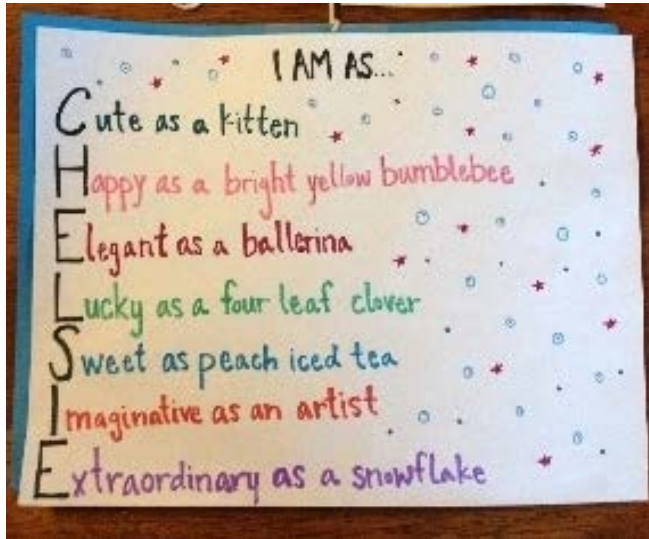 I AM AS...
Cute as a kitten
Happy as a bright yellow bumblebee
Elegant as a ballerina
Lucky as a four leaf clover
Sweet as peach iced tea
Imaginative as an artist
Extraordinary as a snowflake